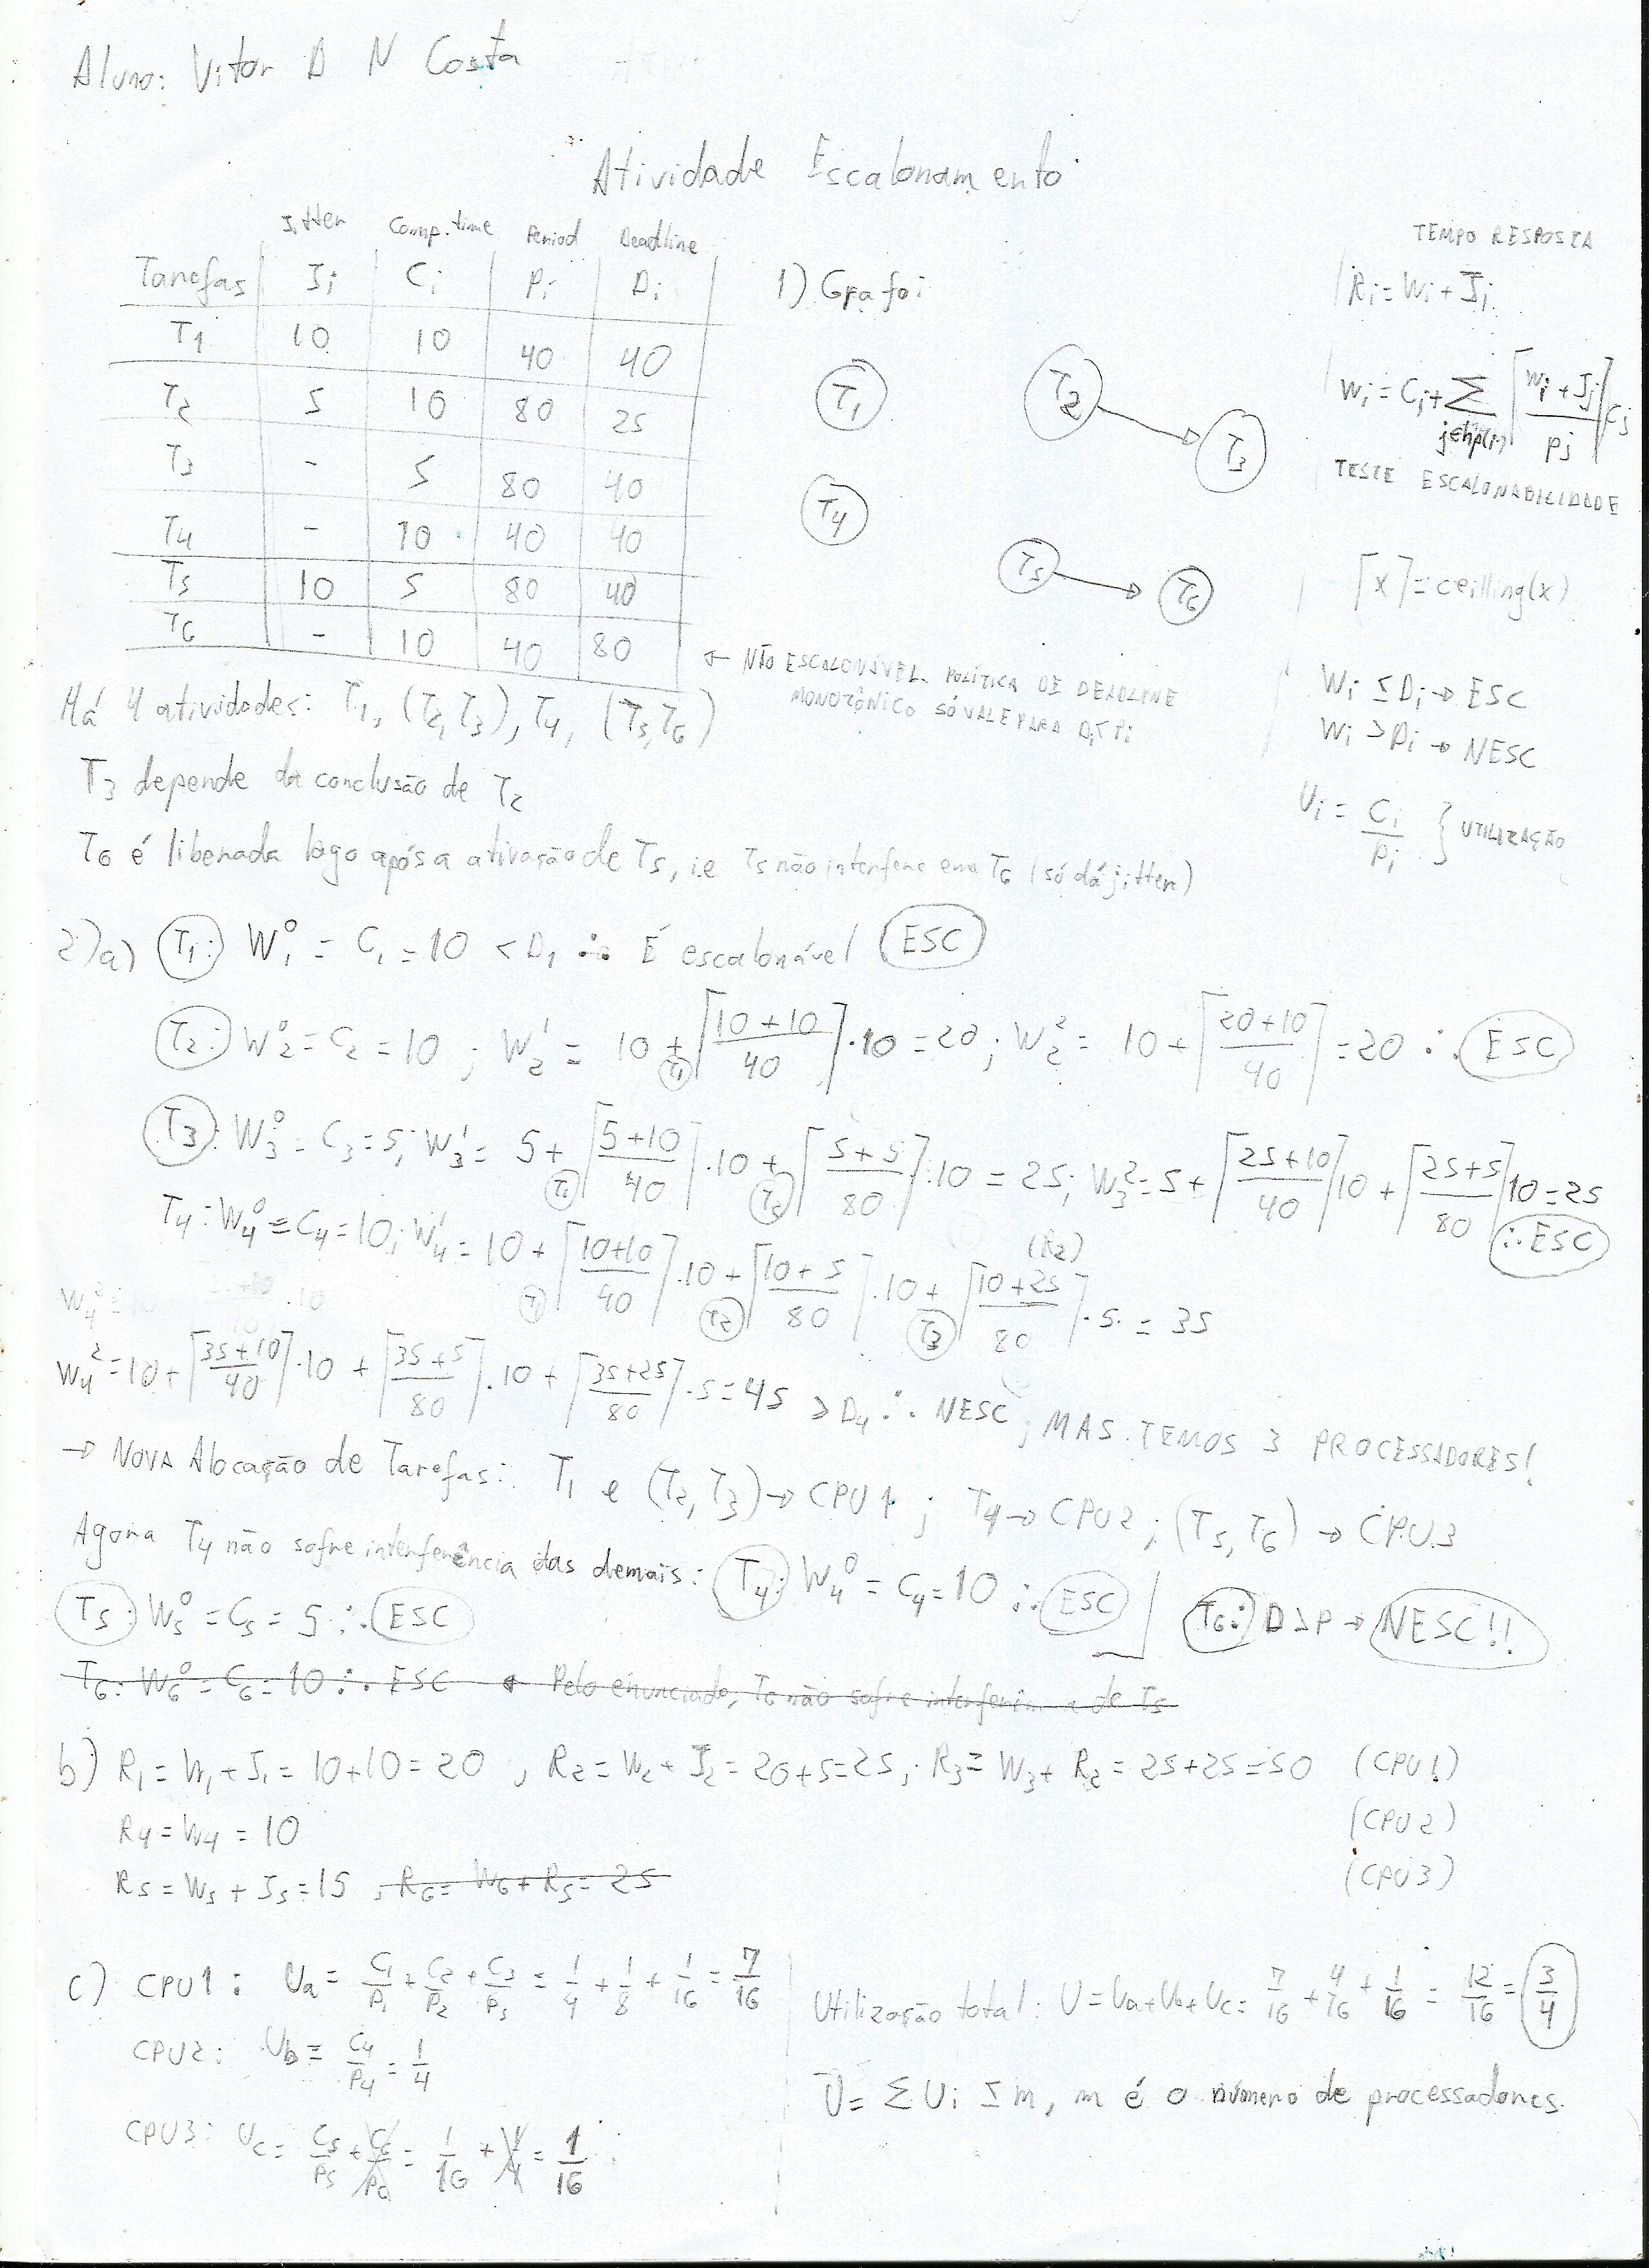 Aluno: Vitor D N Costa
Atividade Escalonamento
Jitter Comp. time Period Deadline
Tarefas Ji Ci Pi Di
T1 10 10 40 40
T2 5 10 80 25
T3 - 5 80 40
T4 - 10 40 40
T5 10 5 80 40
T6 - 10 40 80
← NÃO ESCALONÁVEL. POLÍTICA DE DEADLINE
MONOTÔNICO SÓ VALE PARA Di≤Pi
1) Grafo:
T1 T2 T3
T4
T5 T6
TEMPO RESPOSTA
Ri = Wi + Ji
Wi = Ci + ∑ j∈hp(i) ⌈(Wi + Jj)/Pj⌉ Cj
TESTE ESCALONABILIDADE
⌈x⌉ = ceilling(x)
Wi ≤ Di → ESC
Wi > Di → NESC
Ui = Ci/Pi } UTILIZAÇÃO
Há 4 atividades: T1, (T2, T3), T4, (T5, T6)
T3 depende da conclusão de T2
T6 é liberada logo após a ativação de T5, i.e T5 não interfere em T6 (só dá jitter)
2)a) T1: W1⁰ = C1 = 10 < D1 ∴ É escalonável ESC
T2: W2⁰ = C2 = 10 ; W2¹ = 10 + ⌈(10+10)/40⌉·10 = 20 ; W2² = 10 + ⌈(20+10)/40⌉ = 20 ∴ ESC
T1
T3: W3⁰ = C3 = 5; W3¹ = 5 + ⌈(5+10)/40⌉·10 + ⌈(5+5)/80⌉·10 = 25; W3² = 5 + ⌈(25+10)/40⌉10 + ⌈(25+5)/80⌉10 = 25
T1 T2 ∴ ESC
T4: W4⁰ = C4 = 10; W4¹ = 10 + ⌈(10+10)/40⌉·10 + ⌈(10+5)/80⌉·10 + ⌈(10+25)/80⌉·5 = 35
(R2)
T1 T2 T3
W4² = 10 + ⌈(35+10)/40⌉·10 + ⌈(35+5)/80⌉·10 + ⌈(35+25)/80⌉·5 = 45 > D4 ∴ NESC, MAS TEMOS 3 PROCESSADORES!
→ NOVA Alocação de Tarefas: T1 e (T2, T3) → CPU1 ; T4 → CPU2 ; (T5, T6) → CPU3
Agora T4 não sofre interferência das demais: T4: W4⁰ = C4 = 10 ∴ ESC
T5: W5⁰ = C5 = 5 ∴ ESC T6: D > P → NESC!!
T6: W6⁰ = C6 = 10 ∴ ESC ← Pelo enunciado, T6 não sofre interferência de T5
b) R1 = W1 + J1 = 10+10 = 20 , R2 = W2 + J2 = 20+5 = 25, R3 = W3 + R2 = 25+25 = 50 (CPU1)
R4 = W4 = 10 (CPU2)
R5 = W5 + J5 = 15 , R6 = W6 + R5 = 25 (CPU3)
c) CPU1: Ua = C1/P1 + C2/P2 + C3/P3 = 1/4 + 1/8 + 1/16 = 7/16
CPU2: Ub = C4/P4 = 1/4
CPU3: Uc = C5/P5 + C6/P6 = 1/16 + 1/4 = 1/16
Utilização total: U = Ua + Ub + Uc = 7/16 + 4/16 + 1/16 = 12/16 = 3/4
U = ∑ Ui ≤ m, m é o número de processadores.